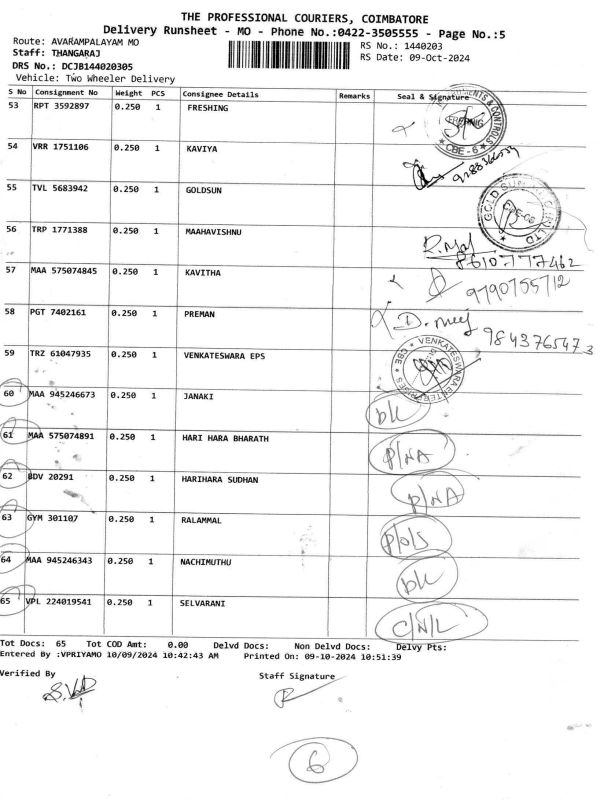 THE PROFESSIONAL COURIERS, COIMBATORE
Delivery Runsheet - MO - Phone No.:0422-3505555 - Page No.:5
Route: AVARAMPALAYAM MO RS No.: 1440203
Staff: THANGARAJ RS Date: 09-Oct-2024
DRS No.: DCJB144020305
Vehicle: Two Wheeler Delivery
S No Consignment No Weight PCS Consignee Details Remarks Seal & Signature
53 RPT 3592897 0.250 1 FRESHING
CBE-6
54 VRR 1751106 0.250 1 KAVIYA
55 TVL 5683942 0.250 1 GOLDSUN
56 TRP 1771388 0.250 1 MAAHAVISHNU
8610777462
57 MAA 575074845 0.250 1 KAVITHA
9790755712
58 PGT 7402161 0.250 1 PREMAN
9843765473
59 TRZ 61047935 0.250 1 VENKATESWARA EPS
VENKATESWARA ENTERPRISES * CBE *
60 MAA 945246673 0.250 1 JANAKI bk
61 MAA 575074891 0.250 1 HARI HARA BHARATH P/NA
62 BDV 20291 0.250 1 HARIHARA SUDHAN P/NA
63 GYM 301107 0.250 1 RALAMMAL P/O/S
64 MAA 945246343 0.250 1 NACHIMUTHU bk
65 VPL 224019541 0.250 1 SELVARANI C/N/L
Tot Docs: 65 Tot COD Amt: 0.00 Delvd Docs: Non Delvd Docs: Delvy Pts:
Entered By :VPRIYAMO 10/09/2024 10:42:43 AM Printed On: 09-10-2024 10:51:39
Verified By Staff Signature
6